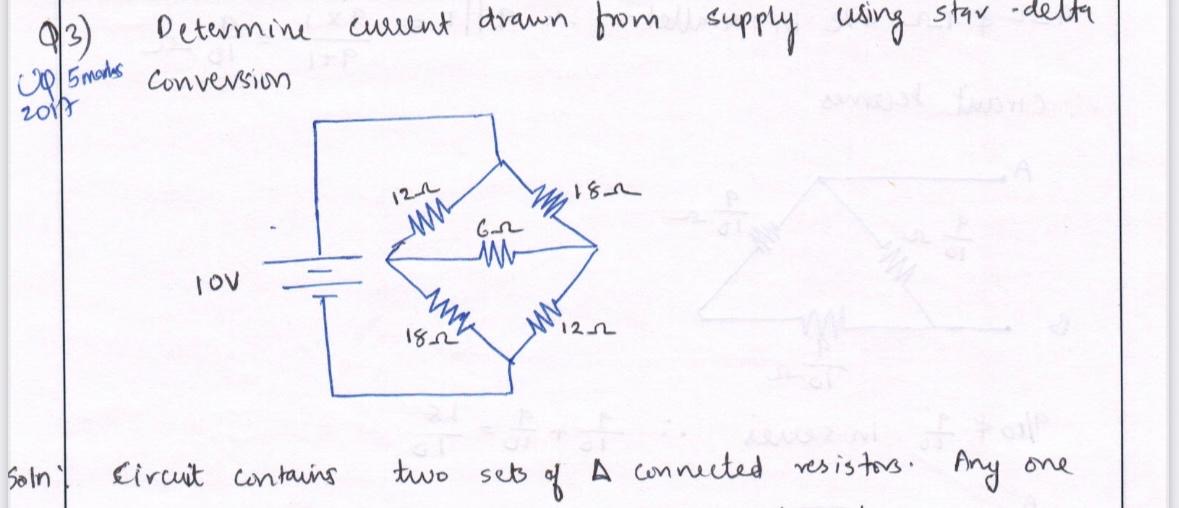 Q3) Determine current drawn from supply using star-delta
UQ 5 marks conversion
2017
12Ω
18Ω
6Ω
10V
18Ω
12Ω
Soln: Circuit contains two sets of Δ connected resistors. Any one